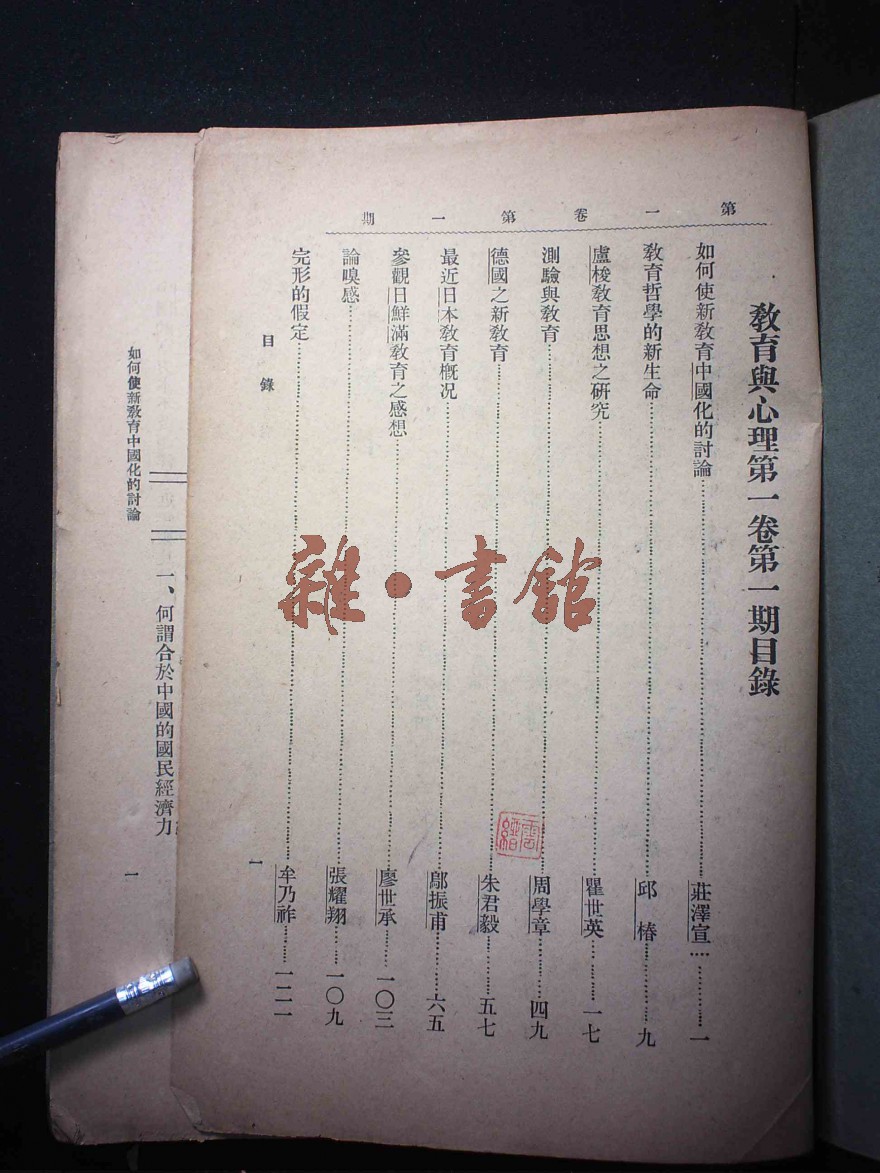 教育與心理第一卷第一期目錄
第一卷第一期
如何使新教育中國化的討論……莊澤宣……一
教育哲學的新生命……邱　椿……九
盧梭教育思想之研究……瞿世英……一七
測驗與教育……周學章……四九
德國之新教育……朱君毅……五七
最近日本教育概况……鄔振甫……六五
參觀日鮮滿教育之感想……廖世承……一〇三
論嗅感……張耀翔……一〇九
完形的假定……牟乃祚……一二一
目錄
一
一、何謂合於中國的國民經濟力
如何使新教育中國化的討論
一
雜·書館